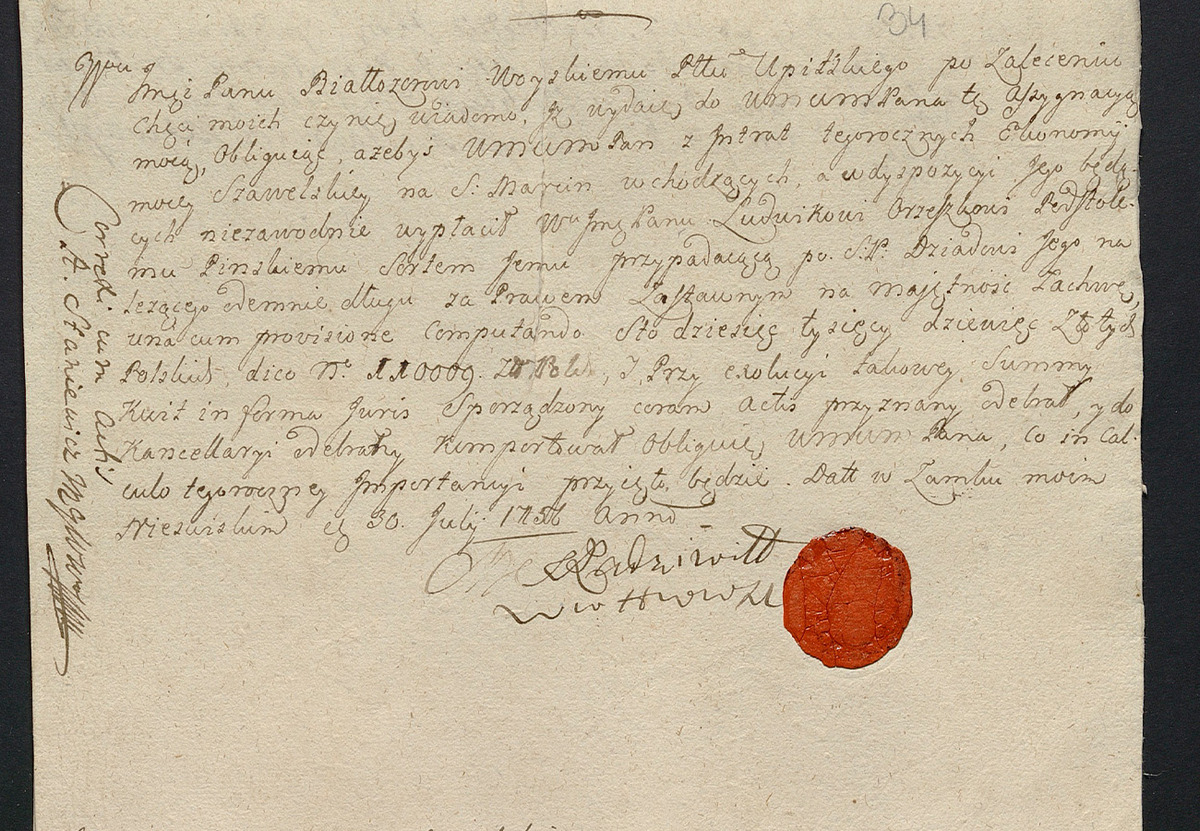 34
Jmći Panu Białłozorowi Woyskiemu Pttu Upitskiego po Zaleceniu
Chęci moich czynię wiadomo, Jż wydaię do UmcumPana tę Assygnacyą
moią, Obliguiąc, ażebyś UmcumPan z Jntrat tegorocznych Ekonomÿi
moiey Szawelskiey na S. Marcin wchodzących, a w dyspozycyi Jego będą-
cych niezawodnie wypłacił Wu JmęPanu Ludwikowi Orzeszkowi Podstole-
mu Pinskiemu, Sortem Jemu przypadaiącą po S.P. Dziadowi Jego na
leżącego odemnie długu za Prawem Zastawnym na maiętność Łachwę,
una cum provisione Computando Sto dziesięc tysięcy dziewięc Złotych
Polskich, dico N. 110009. Zł Pols, J Przy exolucyi takowey Summy
Kwit in forma Juris Sporządzony coram Actis przyznany odebrał, y do
Kancellaryi Odebrany Komportował Obliguię UmcumPana, Co in Cal-
culo tegoroczney Jmportancyi przyięto będzie. Datt w Zamku moim
Nieswiskim 30. July 1756 Anno
Radziwiłł
Corred. cum Actis
St. Staniewicz